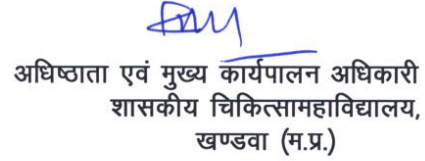 अधिष्ठाता एवं मुख्य कार्यपालन अधिकारी
शासकीय चिकित्सामहाविद्यालय,
खण्डवा (म.प्र.)